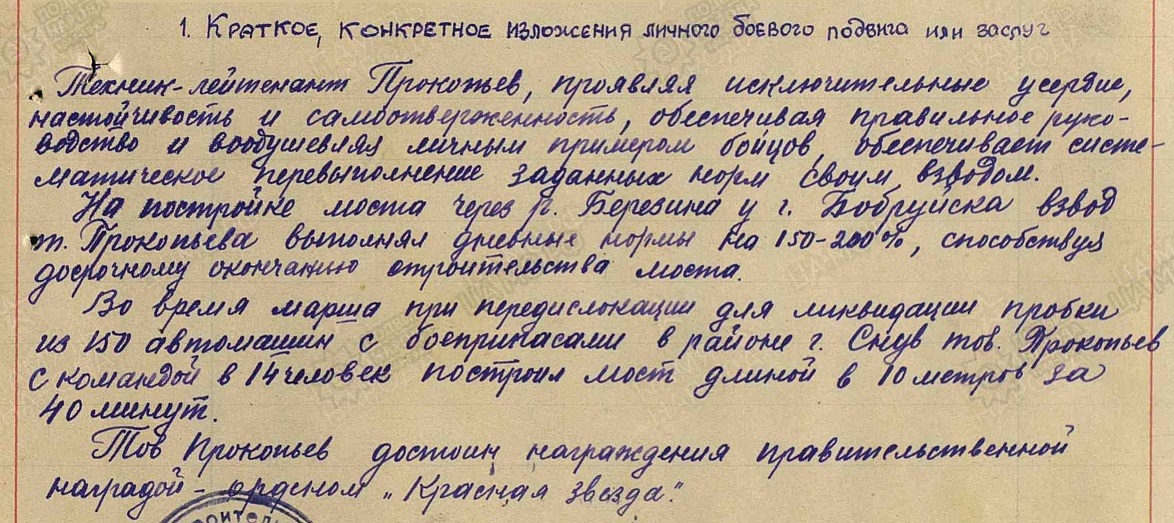 1. Краткое, конкретное изложения личного боевого подвига или заслуг
Техник-лейтенант Прокопьев, проявляя исключительные усердие,
настойчивость и самоотверженность, обеспечивая правильное руко-
водство и воодушевляя личным примером бойцов, обеспечивает систе-
матическое перевыполнение заданных норм своим взводом.
На постройке моста через р. Березина у г. Бобруйска взвод
т. Прокопьева выполнял дневные нормы на 150-200%, способствуя
досрочному окончанию строительства моста.
Во время марша при передислокации для ликвидации пробки
из 150 автомашин с боеприпасами в районе г. Снув тов. Прокопьев
с командой в 14 человек построил мост длиной в 10 метров за
40 минут.
Тов Прокопьев достоин награждения правительственной
наградой - орденом „Красная звезда".